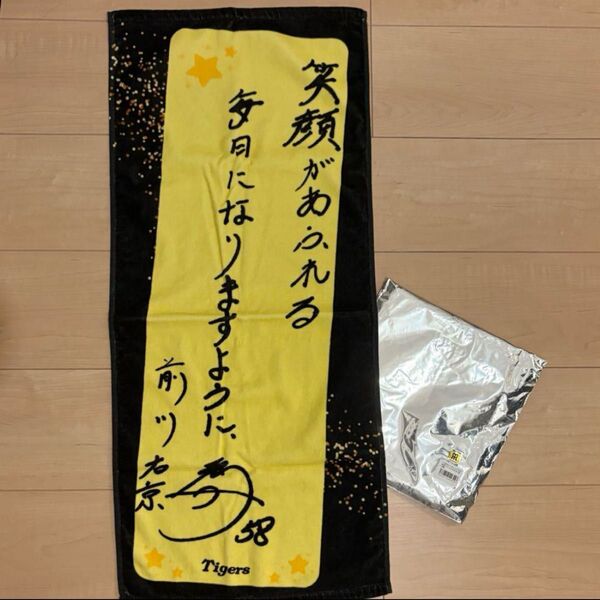 笑顔があふれる
毎日になりますように、
前川
右京
58
Tigers